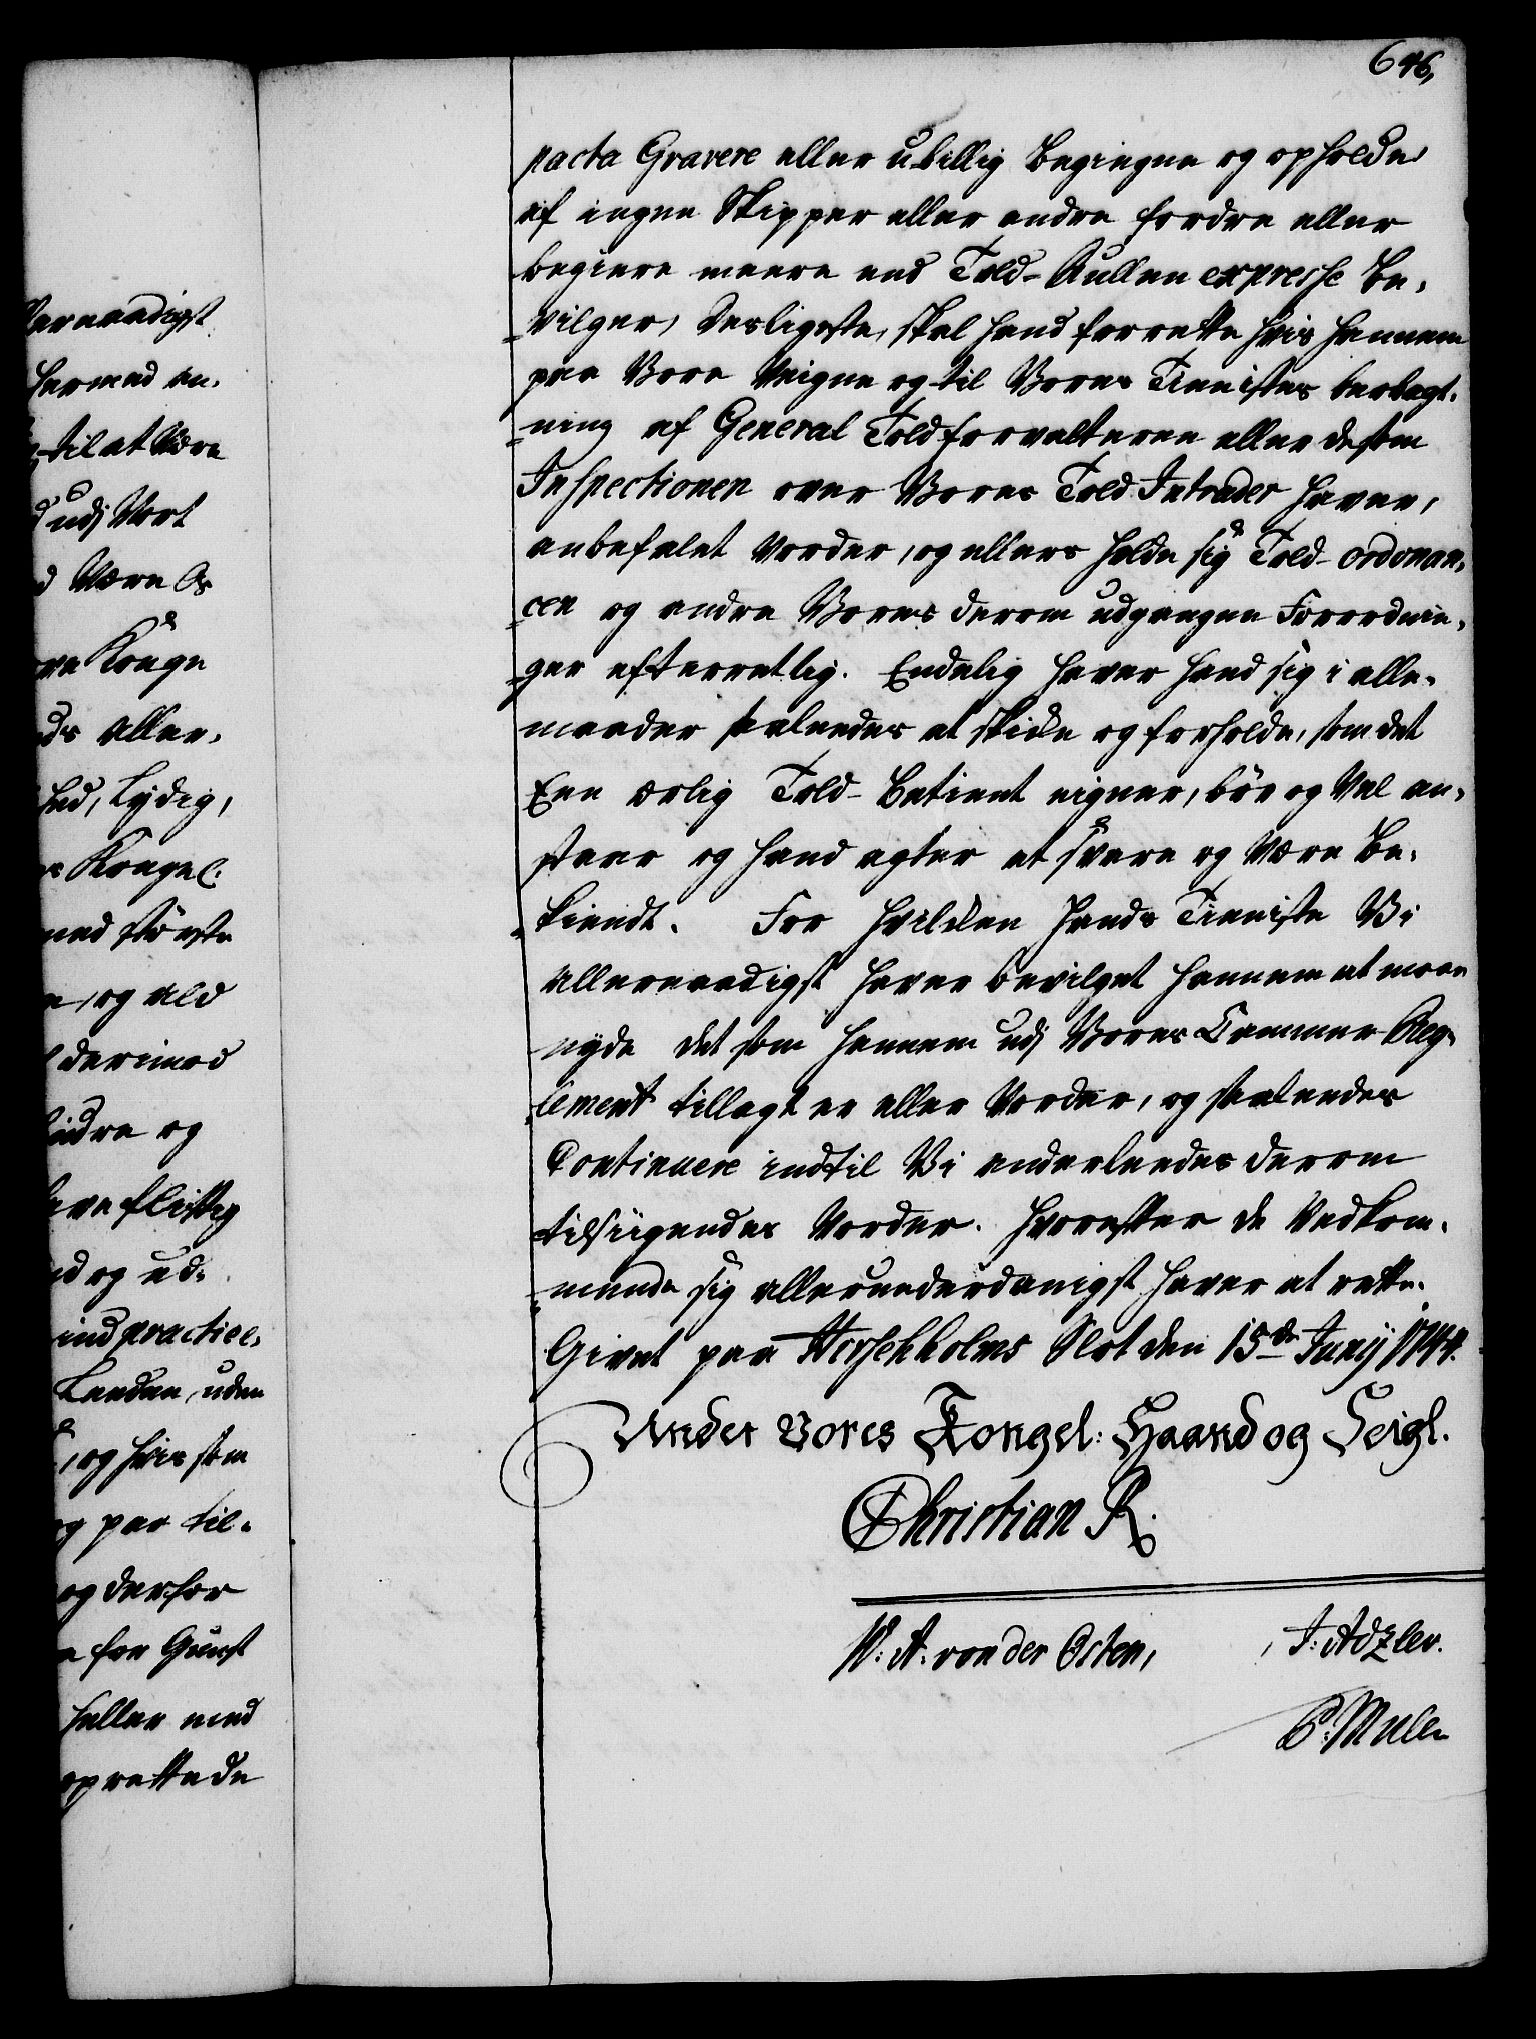 646,
pacta Gravere eller ubillig begiegne og opholde
af ingen Skipper eller andre fordre eller
begiere meere end Told-Rullen expresse be-
vilger, desligeste, skal hand forrette hvis hannem
paa Vore Veigne og til Vores Tieniste
ning af General Toldforvalteren eller de som
Inspectionen over Vores Told Intrader haver,
anbefalet vorder, og ellers holde sig Told-ordonan-
cen og andre Vores derom udgangne Forordnin-
ger efterretlig. Endelig haver hand sig i alle-
maader saaledes at skicke og forholde, som det
Een ærlig Told-Betient eigner, bør og Vel an-
staar og hand agter at svare og Være be-
kiendt. For hvilcken hands Tieniste Vi
allernaadigst haver bevilget hannem at maae
nyde det som hannem udj Vores Cammer-Reg-
lement tillagt er eller Vorder, og saaledes
Continuere indtil Vi anderleedes derom
tilsiigendes Vorder. Hvorefter de Vedkom-
mende sig allerunderdanigst haver at rette.
Givet paa Hirschholms Slot den 15de Junij 1744.
Under Vores Kongel: Haand og Seigl.
Christian R.
W: A: von der Osten,
J: Adzler.
P: Mule
lernaadigst
hermed an-
til at Være
udj Vort
Være Os
Konge
aller-
hed, Lydig,
Kongel.
med største
og ald
derimod
lindre og
ave flittig
og ud-
ind practice-
Landen, uden
, og hvis som
paa til-
og derfor
for Gunst
heller med
oprettede